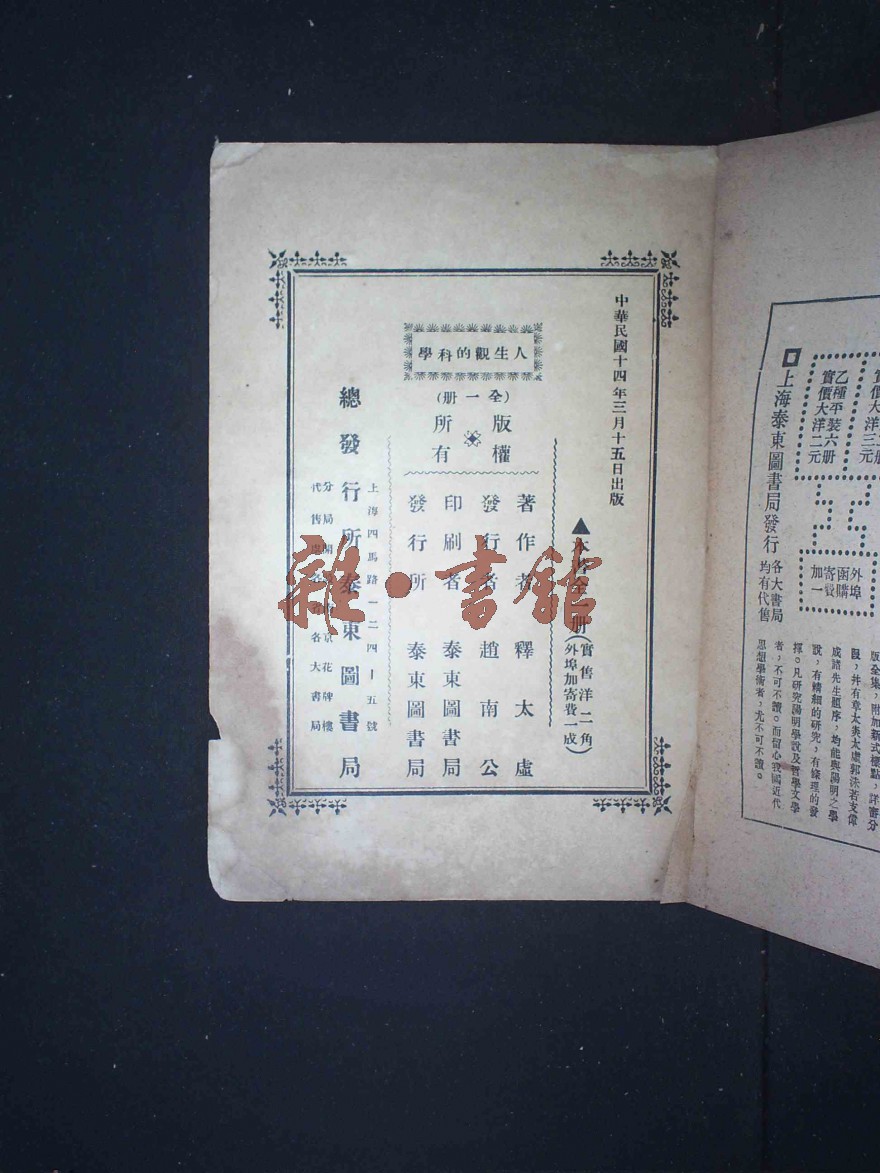 中華民國十四年三月十五日出版
▲本書全一册
(實售洋二角
外埠加寄費一成)
人生觀的科學
(全一册)
版權
所有
著作者 釋太虛
發行者 趙南公
印刷者 泰東圖書局
發行所 泰東圖書局
上海四馬路一二四—五號
總發行所 泰東圖書局
分局 京花牌樓
代售 各大書局
雜·書館
實價大洋三元
乙種平裝六册
實價大洋二元
外埠
函購
寄費
加一
上海泰東圖書局發行
各大書局
均有代售
版全集，附加新式標點，詳審分
段，幷有章太炎太虛郭沫若支偉
成諸先生題序，均能與陽明之學
說，有精細的研究，有條理的發
揮。凡研究陽明學說及哲學文學
者，不可不讀。而留心我國近代
思想學術者，尤不可不讀。